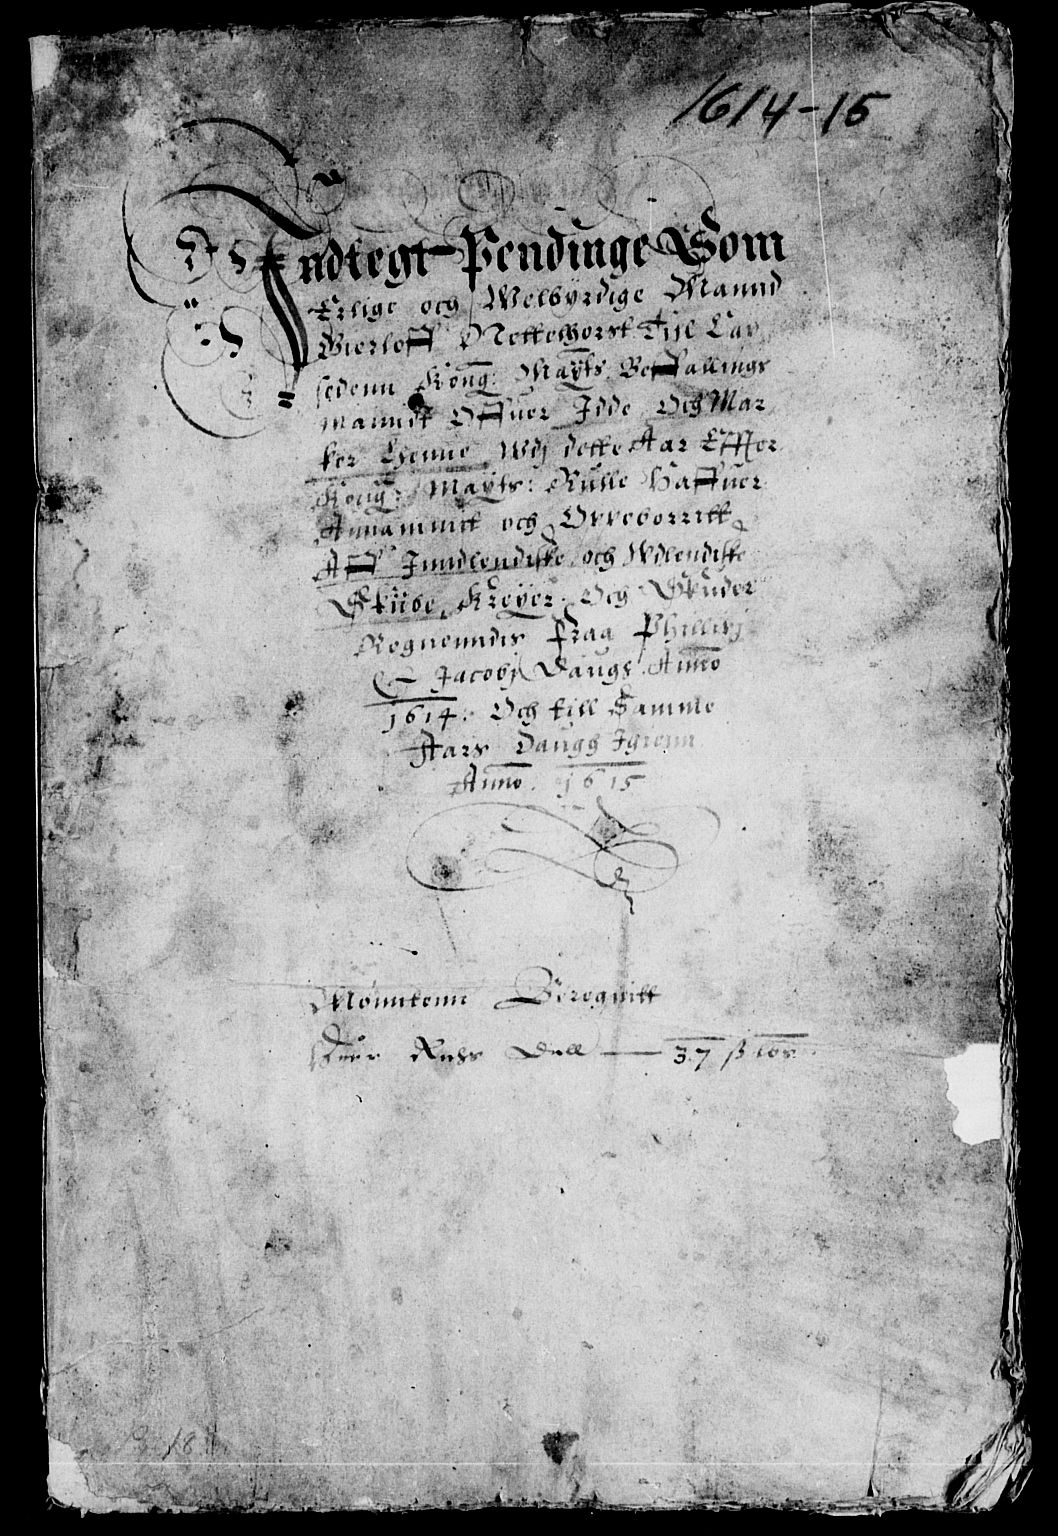 1614-15
Indtegt Pendinge Som
Erlige och Welbÿrdige Maund
Gierloff Nettelhorst Till Lau
sedenn Kong: Maÿts Beffallings
Manndt Offuer Idde Och Mar
ker Lhenne Wdj dette Aar Effter
Kong: Maÿts: Rulle Haffuer
Annammit och Oppeborritt
Aff Inndlendiske och Wdlendiske
Skibe Kreÿer Och Skuder
Regnenndis fraa Phillipj
Jacobj Daugs Anno
1614. Och till Samme
Aars Daugh Igienn
Anno. 1615
Mønntenn Beregnitt
Huer Richs Dall — 37 ß